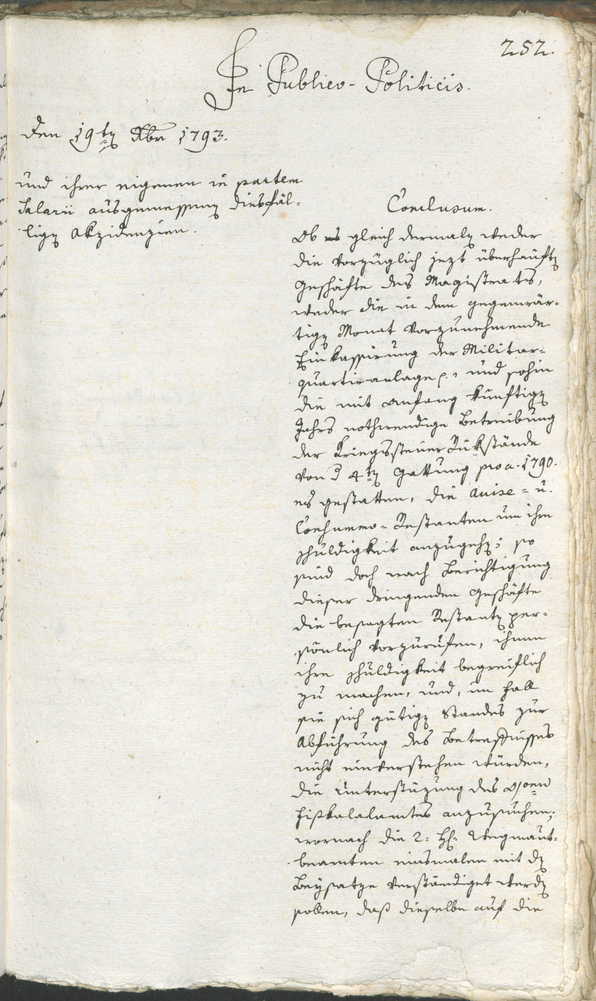 252.
In Publico-Politicis.
Den 19ten Xbr 1793.
und ihrer eigenen in partem
Salarii ausgemessenen diesfäl-
ligen Akzidenzien.
Conclusum.
Ob es gleich dermalen weder
die vorzüglich jezt überhäuften
Geschäfte des Magistrats,
weder die in dem gegenwär-
tigen Monat vorzunehmende
Einkassierung der Militar-
quartieranlage und sohin
die mit Anfang künftigen
Jahrs nothwendige Betreibung
der Kriegssteuer Rükstände
von 4ten Gattung pro a. 1790.
es gestatten, die u.
Consummo-Restanten um ihre
Schuldigkeit anzugehen; so
sind doch nach Berichtigung
dieser dringenden Geschäfte
die besagten Restanten per-
sönlich vorzurufen, ihnen
ihre Schuldigkeit begreiflich
zu machen, und, im Fall
sie sich gütigen Standes zur
Abführung des Betreffnisses
nicht einverstehen würden,
die Unterstüzung des
Fiskalalamtes anzusuchen;
wornach die 2. HH. Wegmaut-
beamten einsmalen mit dem
Beysatze verständiget werden
sollen, daß dieselbe auf die